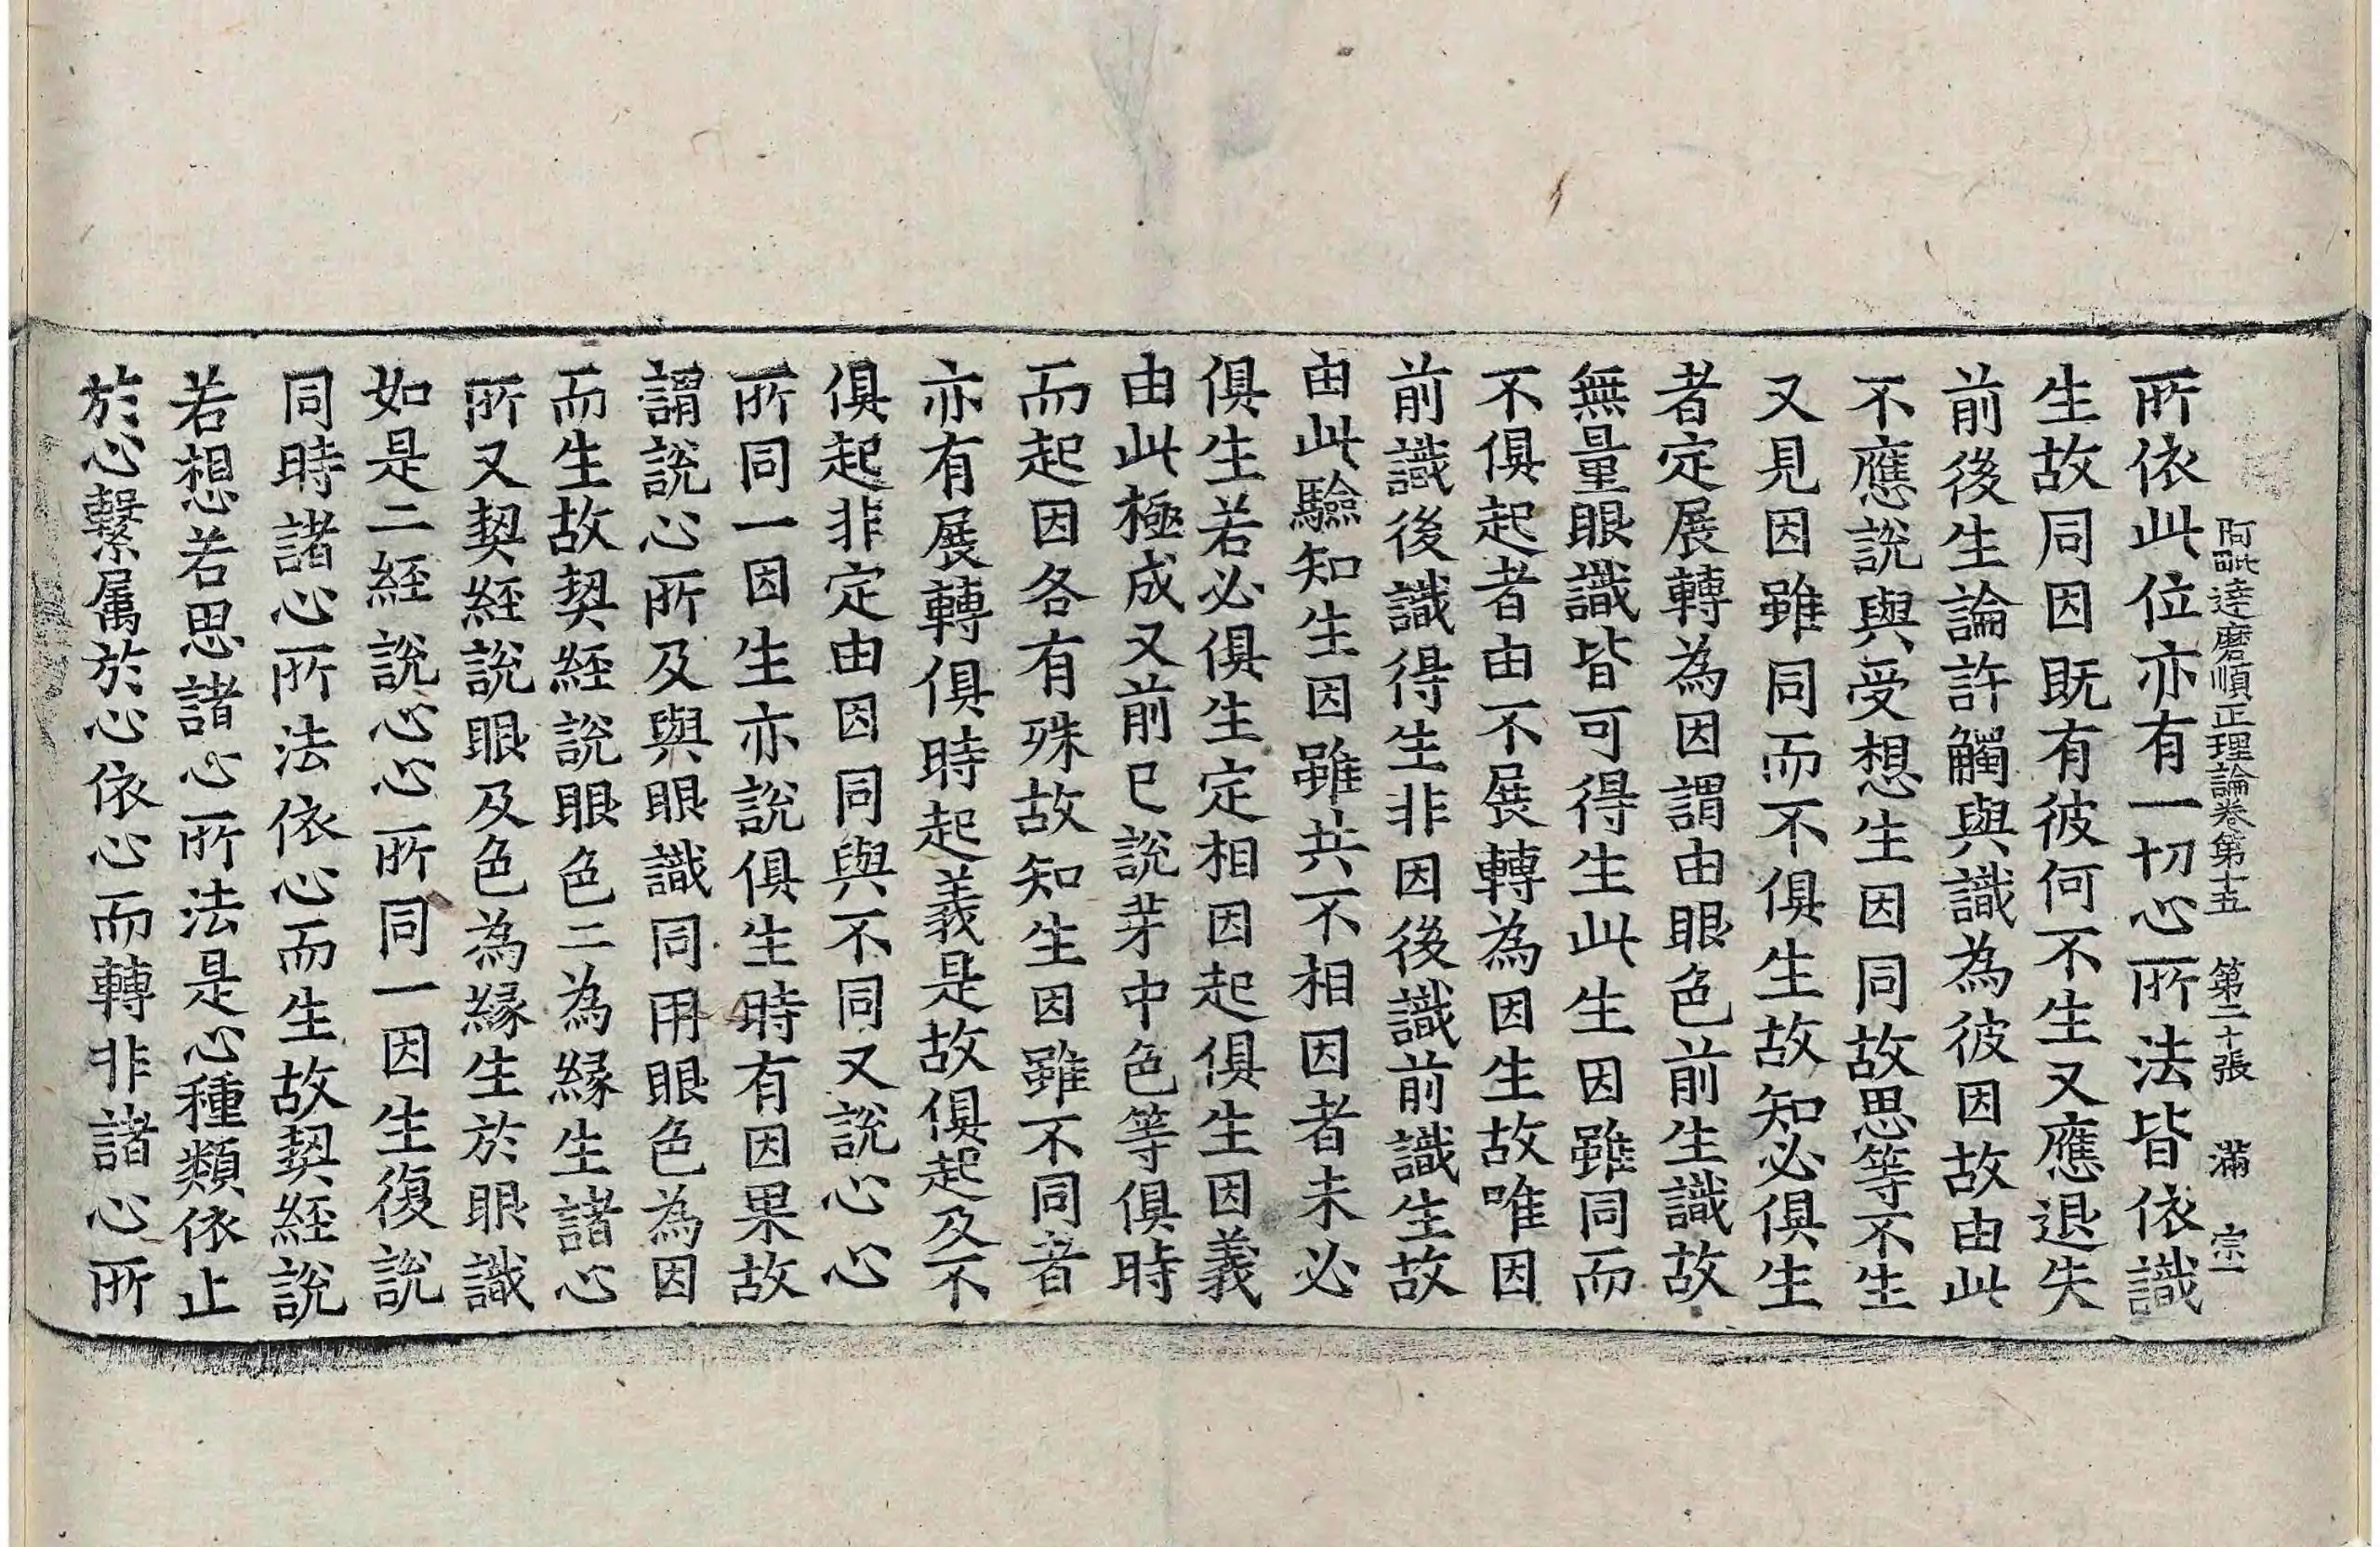 阿毗達磨順正理論卷第十五 第二十張 滿 宗一
所依此位亦有一切心所法皆依識
生故同因既有彼何不生又應退失
前後生論許觸與識為彼因故由此
不應說與受想生因同故思等不生
又見因雖同而不俱生故知必俱生
者定展轉為因謂由眼色前生識故
無量眼識皆可得生此生因雖同而
不俱起者由不展轉為因生故唯因
前識後識得生非因後識前識生故
由此驗知生因雖共不相因者未必
俱生若必俱生定相因起俱生因義
由此極成又前已說芽中色等俱時
而起因各有殊故知生因雖不同者
亦有展轉俱時起義是故俱起及不
俱起非定由因同與不同又說心心
所同一因生亦說俱生時有因果故
謂說心所及與眼識同用眼色為因
而生故契經說眼色二為緣生諸心
所又契經說眼及色為緣生於眼識
如是二經說心心所同一因生復說
同時諸心所法依心而生故契經說
若想若思諸心所法是心種類依止
於心繫屬於心依心而轉非諸心所